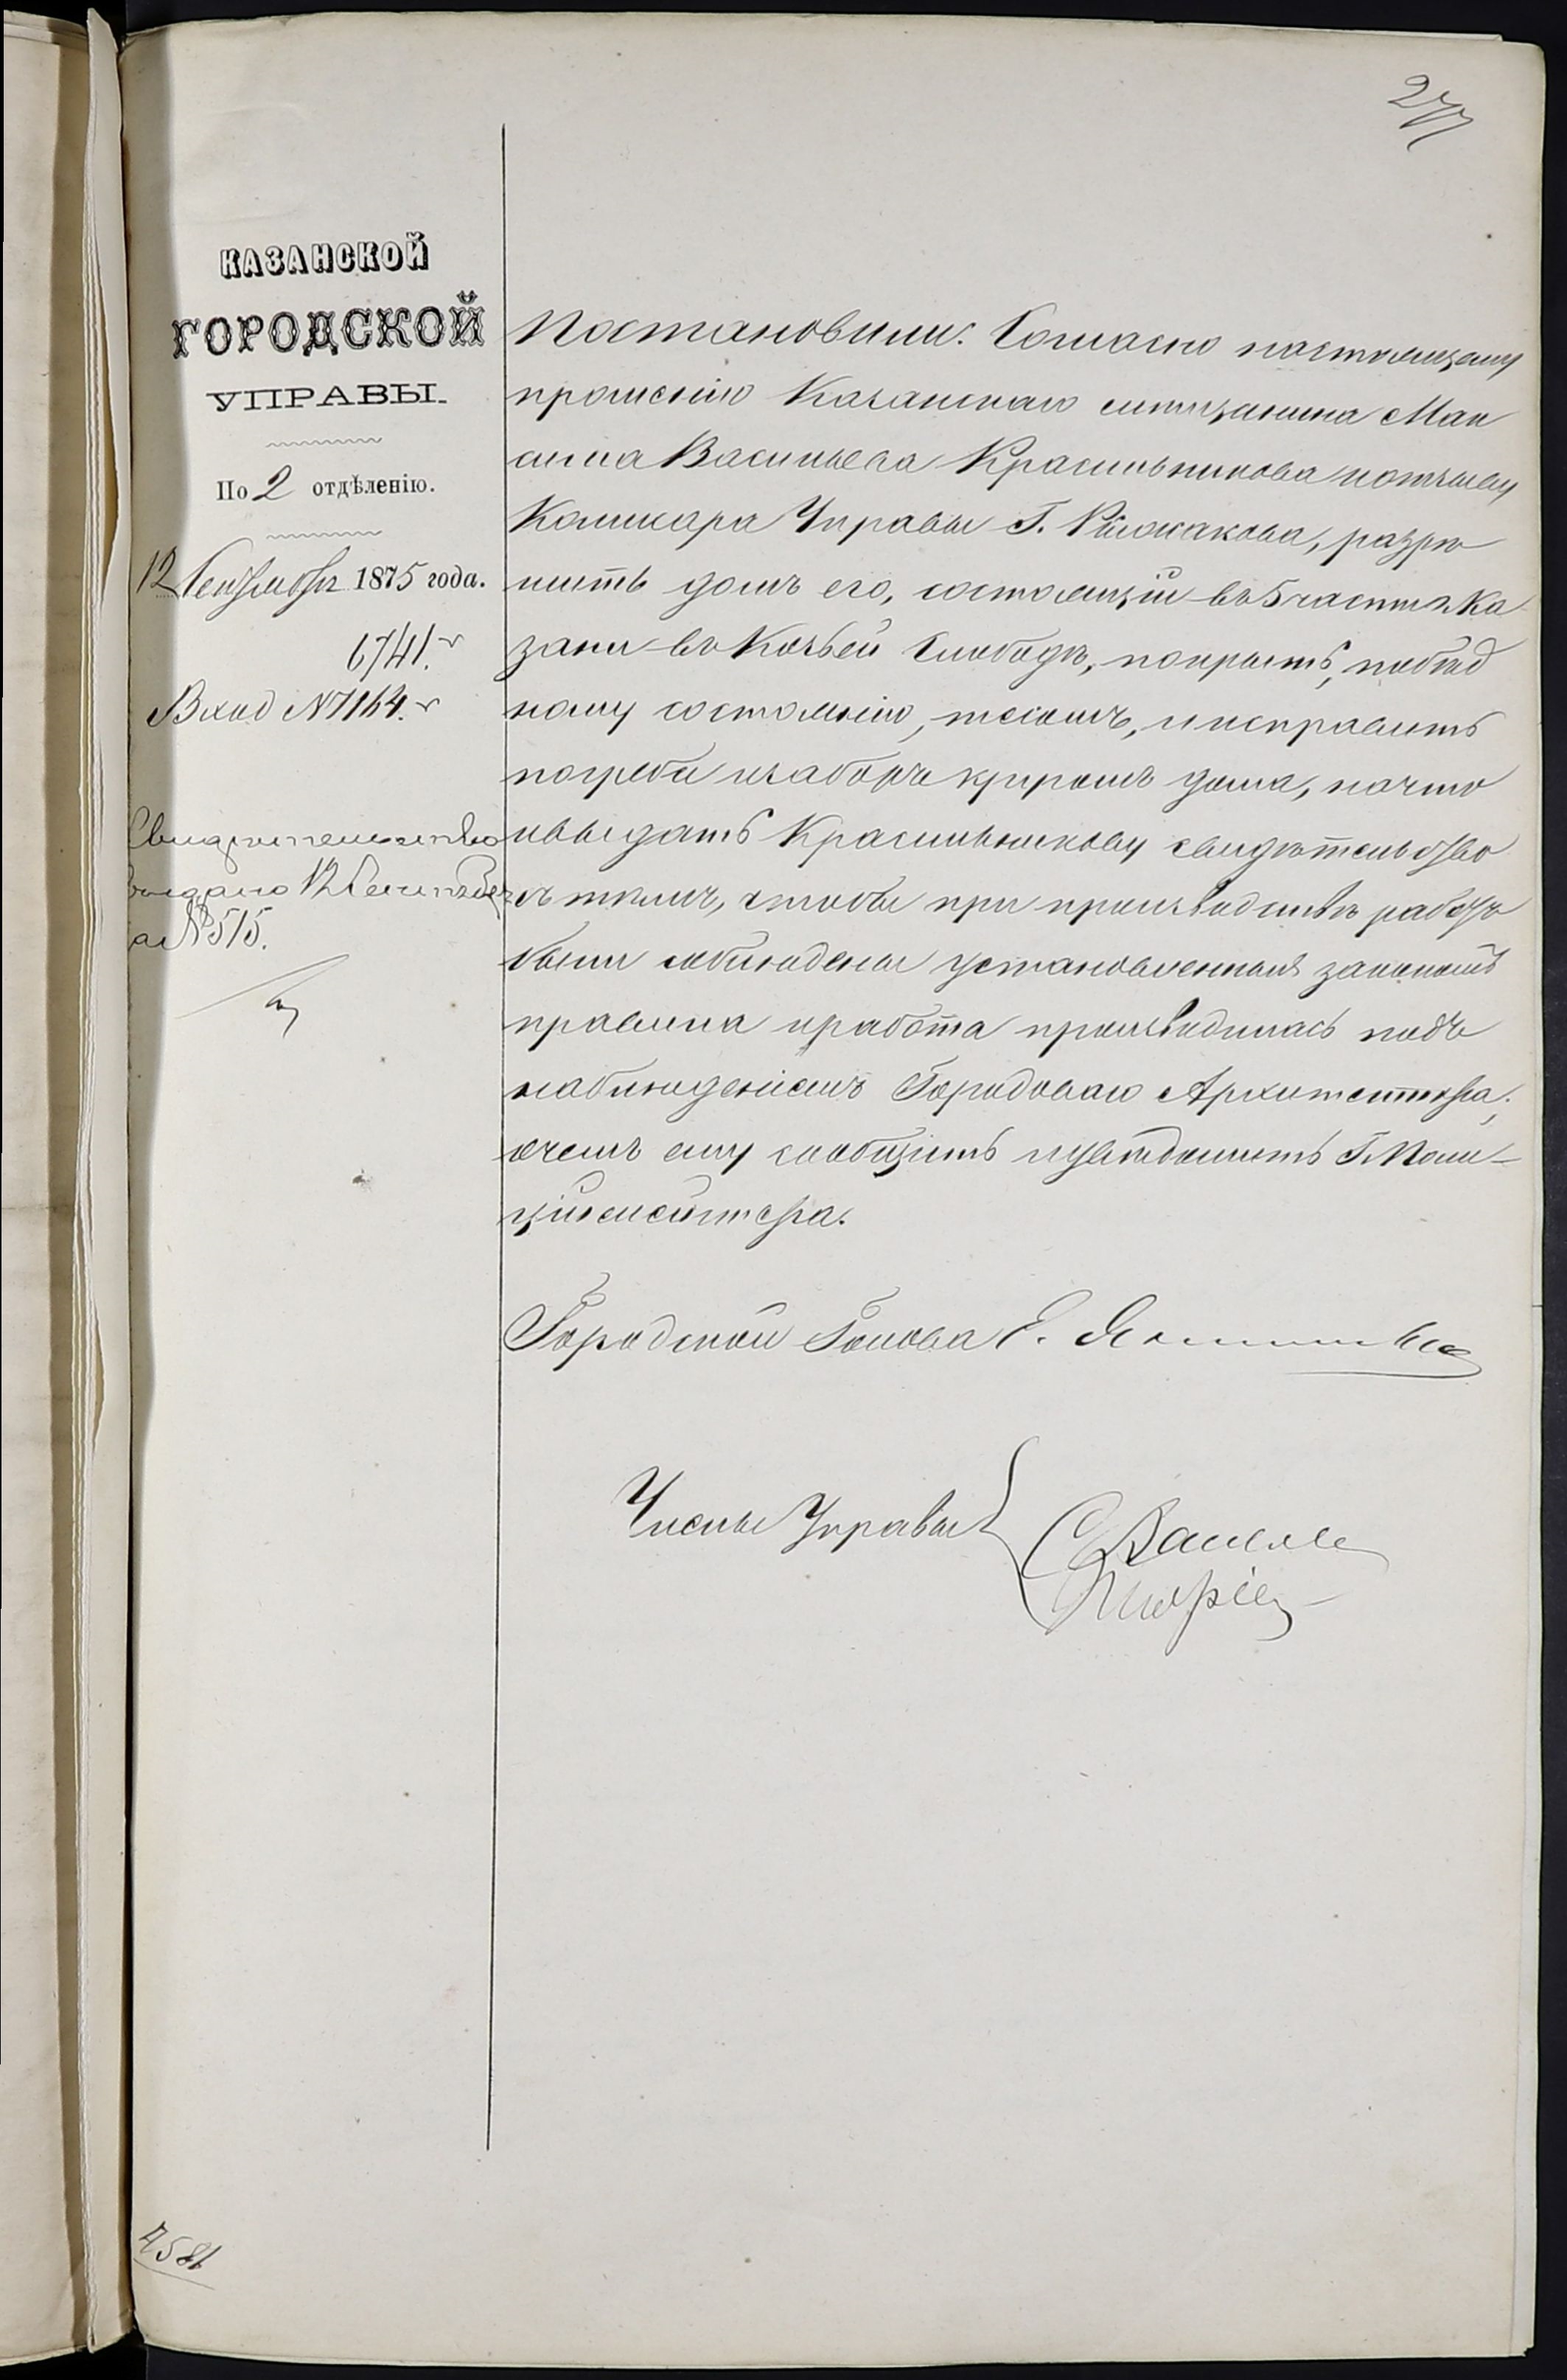 277
КАЗАНСКОЙ
ГОРОДСКОЙ
УПРАВЫ.
По 2 отдѣленію.
12 Сентября 1875 года.
6741.
Вход № 7164.
Свидѣтельство
выдано 12 Сентября
за № 515.
Постановили: Согласно настоящему
прошенію Казанскаго мѣщанина Мак
сима Васильева Красильникова и отзыву
Комисара Управы Г. разрѣ
шить домъ его, состоящій въ 5 части г. Ка
зани въ Козьей Слободѣ, покрыть, по бѣд
ному состоянію, тесомъ, и исправить
погреба и заборъ кругомъ дома, на что
и выдать Красильникову свидѣтельство
съ тѣмъ, чтобы при производствѣ работъ
были соблюдены установленныя закономъ
правила и работа производилась подъ
наблюденіемъ Городоваго Архитектора;
о чемъ ему сообщить и увѣдомить Г. Поли-
ціймейстера.
Городской Голова Е.
Члены Управы
7581